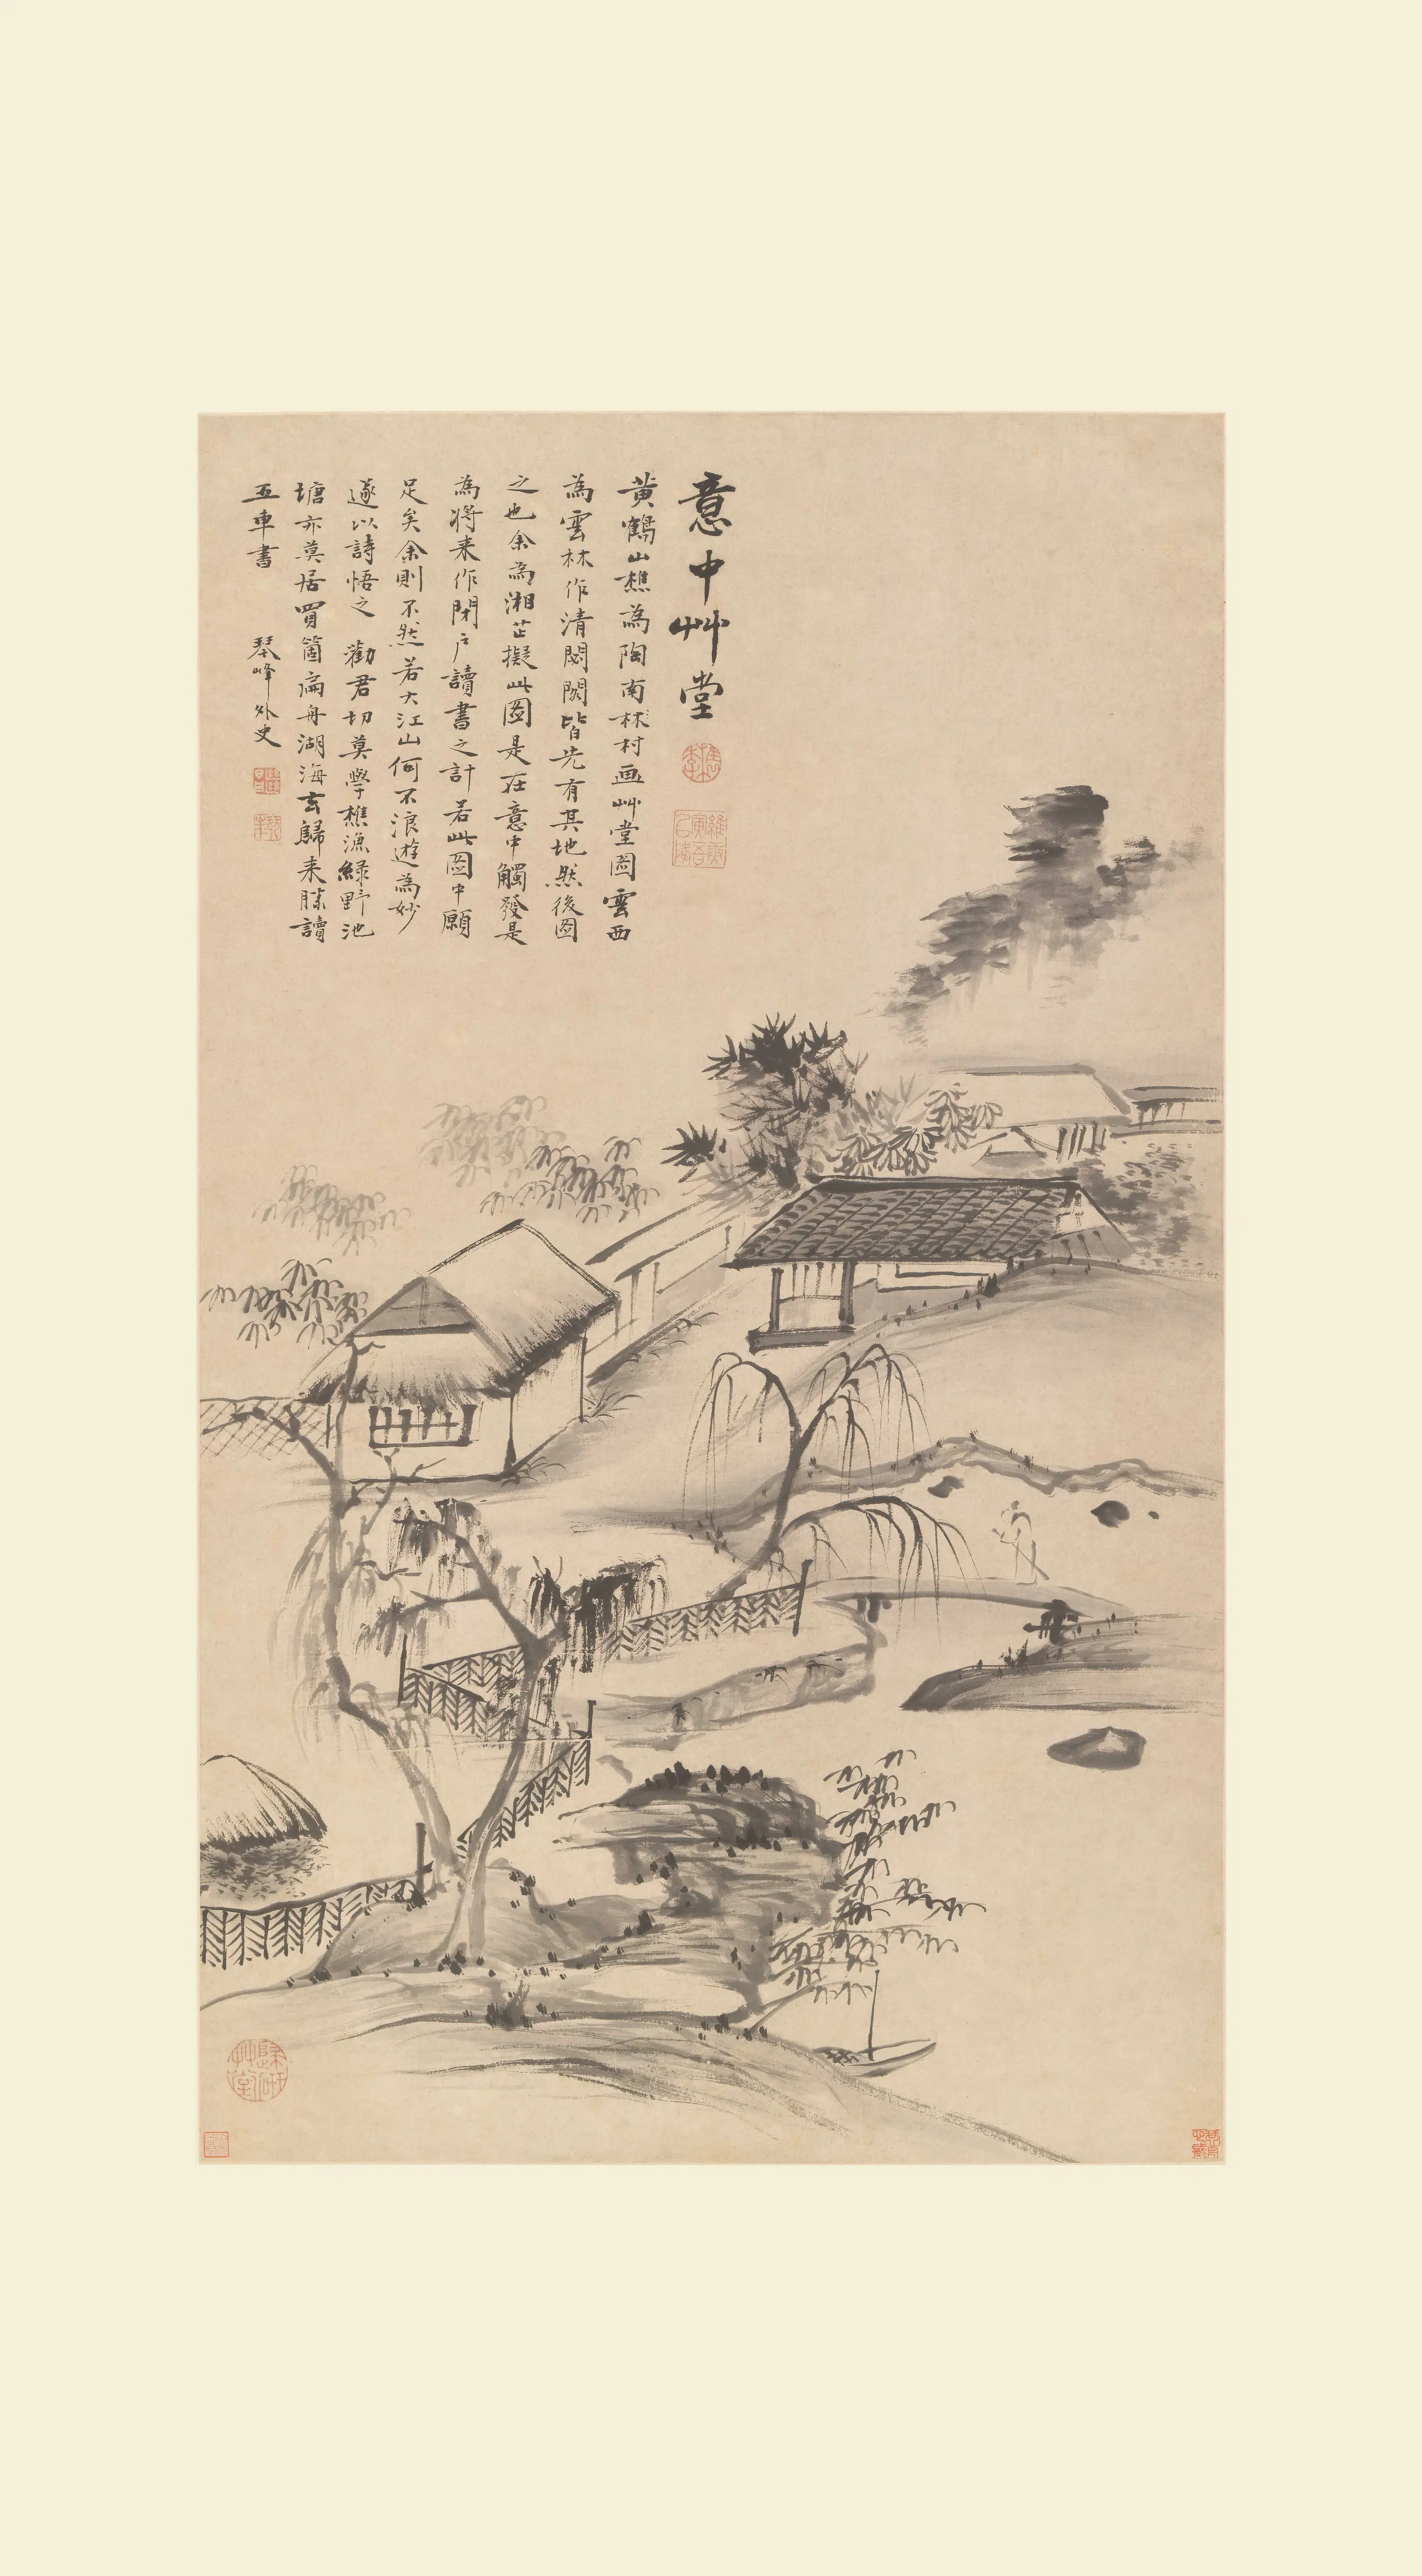 意中艸堂
黄鶴山樵為陶南林村畫艸堂圖雲西
為雲林作清閟閣皆先有其地然後圖
之也余為湘芷擬此圖是在意中觸發是
為將来作閉户讀書之計若此圖中願
足矣余則不然若大江山何不浪遊為妙
遂以詩悟之 勸君切莫學樵漁綠野池
塘亦莫居買箇扁舟湖海去歸来勝讀
五車書 琴峰外史